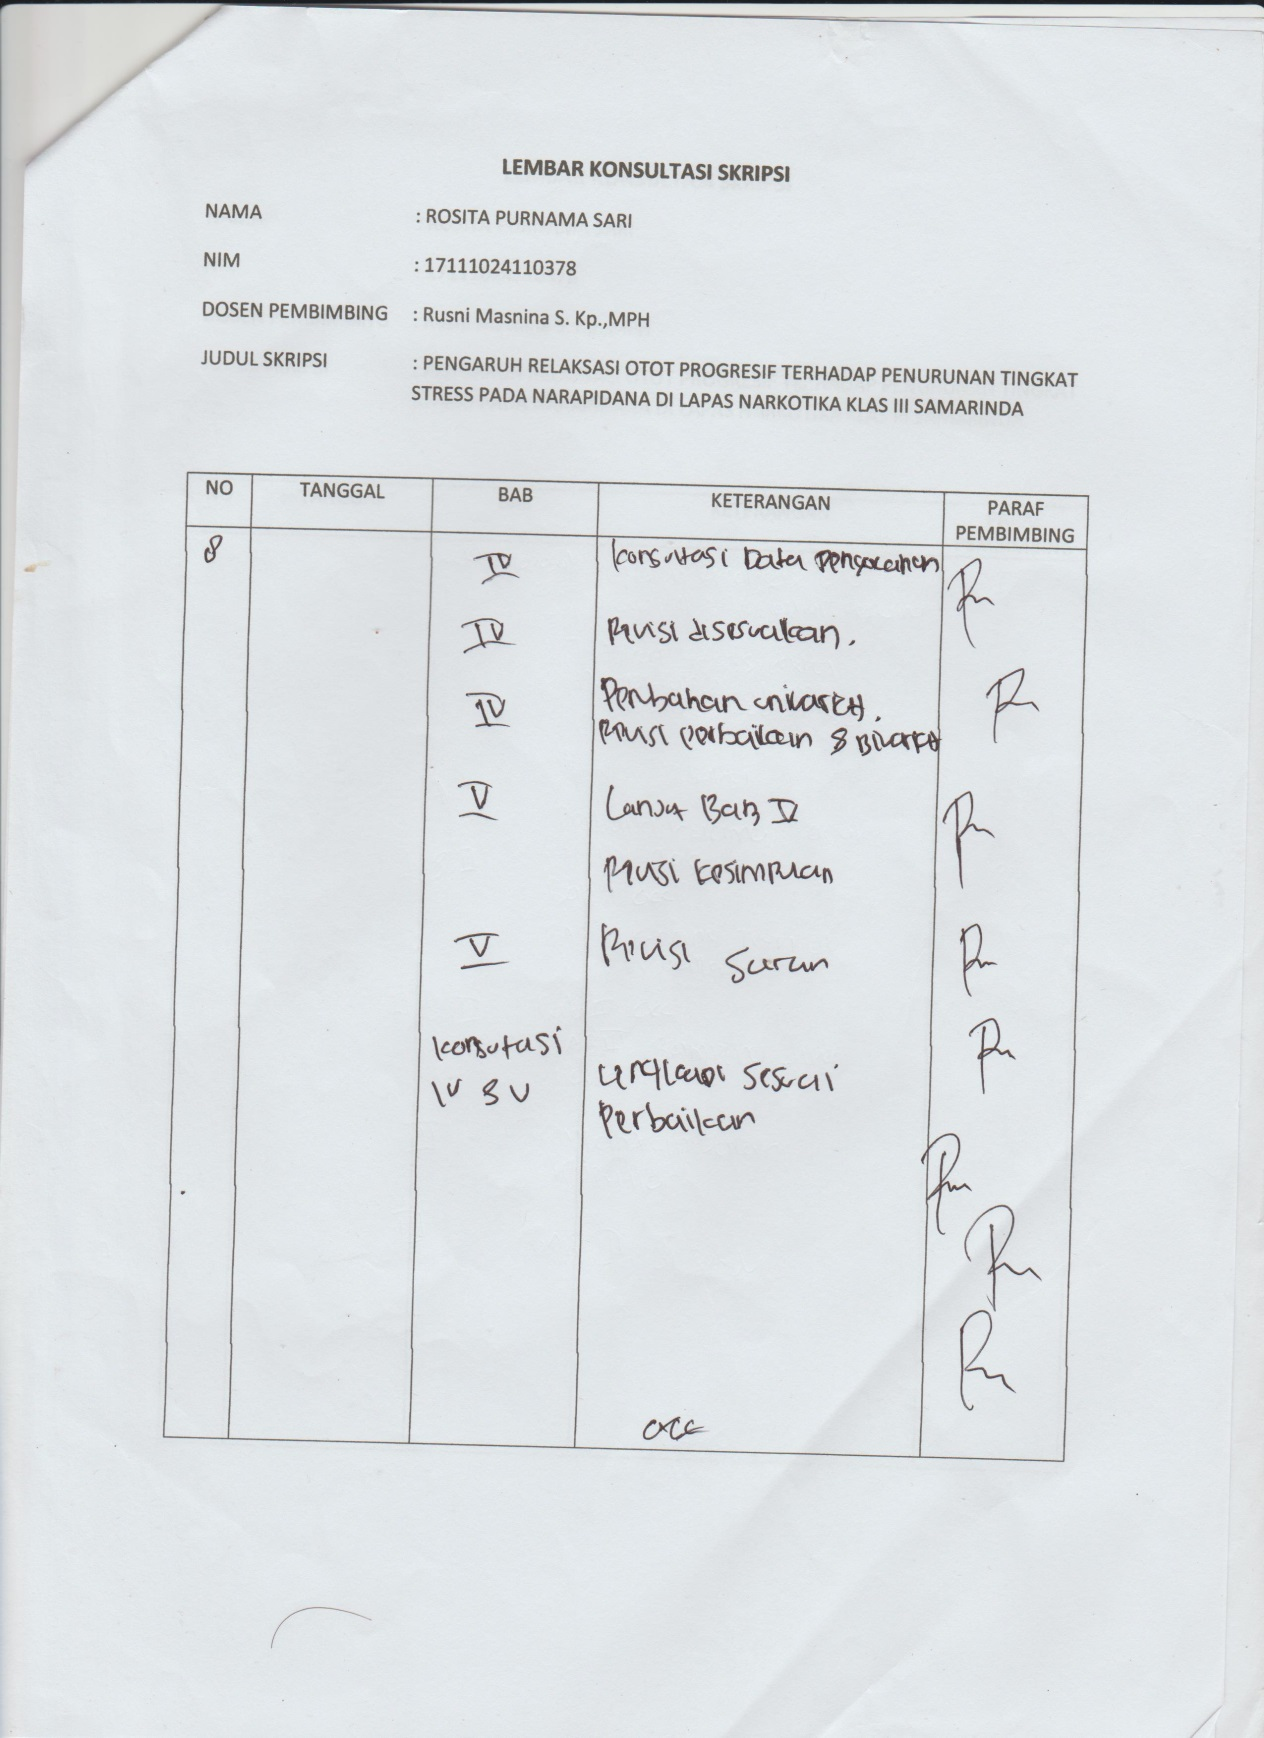 LEMBAR KONSULTASI SKRIPSI
NAMA : ROSITA PURNAMA SARI
NIM : 17111024110378
DOSEN PEMBIMBING : Rusni Masnina S. Kp.,MPH
JUDUL SKRIPSI : PENGARUH RELAKSASI OTOT PROGRESIF TERHADAP PENURUNAN TINGKAT
STRESS PADA NARAPIDANA DI LAPAS NARKOTIKA KLAS III SAMARINDA
NO TANGGAL BAB KETERANGAN PARAF
PEMBIMBING
8 IV Konsultasi Data
IV Revisi disesuaikan.
IV
Revisi perbaikan &
V Lanjut BAB V
Revisi Kesimpulan
V Revisi Saran
Konsultasi
IV & V Lengkapi Sesuai
Perbaikan
acc